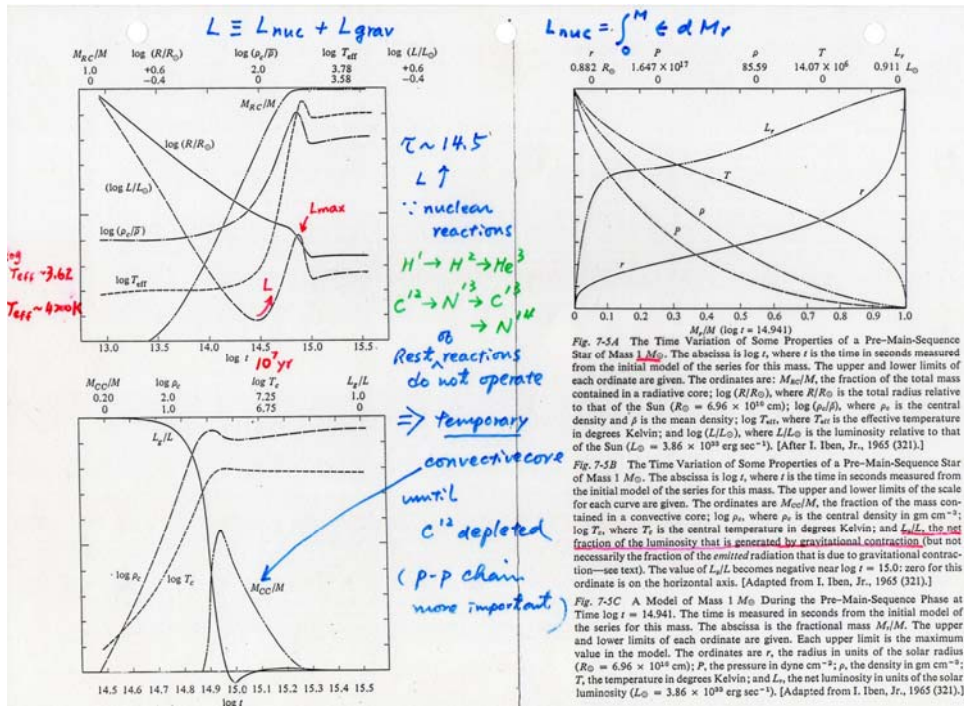 L ≡ Lnuc + Lgrav
M_RC/M log (R/R⊙) log (ρc/ρ̄) log Teff (log L/L⊙)
1.0 +0.6 2.0 3.78 +0.6
0 −0.4 0 3.58 −0.4
M_RC/M
log (R/R⊙)
(log L/L⊙)
Lmax
log (ρc/ρ̄)
log Teff
L
log
Teff ~3.62
Teff ~ 4200K
13.0 13.5 14.0 14.5 15.0 15.5
log t
10⁷yr
M_CC/M log ρc log Tc Lg/L
0.20 2.0 7.25 1.0
0 1.0 6.75 0
Lg/L
log ρc
log Tc
M_CC/M
14.5 14.6 14.7 14.8 14.9 15.0 15.1 15.2 15.3 15.4 15.5
log t
τ ~ 14.5
L ↑
∵ nuclear
reactions
H¹ → H² → He³
C¹² → N¹³ → C¹³
→ N¹⁴
Rest of reactions
do not operate
⇒ temporary
convective core
until
C¹² depleted
(p-p chain
more important)
Lnuc = ∫₀ᴹ ε d Mr
r P ρ T Lr
0.882 R⊙ 1.647 × 10¹⁷ 85.59 14.07 × 10⁶ 0.911 L⊙
0 0 0 0 0
Lr
T
r
ρ
P
r
0 0.1 0.2 0.3 0.4 0.5 0.6 0.7 0.8 0.9 1.0
Mr/M (log t = 14.941)
Fig. 7-5A The Time Variation of Some Properties of a Pre–Main-Sequence
Star of Mass 1 M⊙. The abscissa is log t, where t is the time in seconds measured
from the initial model of the series for this mass. The upper and lower limits of
each ordinate are given. The ordinates are: M_RC/M, the fraction of the total mass
contained in a radiative core; log (R/R⊙), where R/R⊙ is the total radius relative
to that of the Sun (R⊙ = 6.96 × 10¹⁰ cm); log (ρc/ρ̄), where ρc is the central
density and ρ̄ is the mean density; log Teff, where Teff is the effective temperature
in degrees Kelvin; and log (L/L⊙), where L/L⊙ is the luminosity relative to that of
the Sun (L⊙ = 3.86 × 10³³ erg sec⁻¹). [After I. Iben, Jr., 1965 (321).]
Fig. 7-5B The Time Variation of Some Properties of a Pre–Main-Sequence Star
of Mass 1 M⊙. The abscissa is log t, where t is the time in seconds measured from
the initial model of the series for this mass. The upper and lower limits of the scale
for each curve are given. The ordinates are M_CC/M, the fraction of the mass con-
tained in a convective core; log ρc, where ρc is the central density in gm cm⁻³;
log Tc, where Tc is the central temperature in degrees Kelvin; and Lg/L, the net
fraction of the luminosity that is generated by gravitational contraction (but not
necessarily the fraction of the emitted radiation that is due to gravitational contrac-
tion—see text). The value of Lg/L becomes negative near log t = 15.0: zero for this
ordinate is on the horizontal axis. [Adapted from I. Iben, Jr., 1965 (321).]
Fig. 7-5C A Model of Mass 1 M⊙ During the Pre–Main-Sequence Phase at
Time log t = 14.941. The time is measured in seconds from the initial model of
the series for this mass. The abscissa is the fractional mass Mr/M. The upper
and lower limits of each ordinate are given. Each upper limit is the maximum
value in the model. The ordinates are r, the radius in units of the solar radius
(R⊙ = 6.96 × 10¹⁰ cm); P, the pressure in dyne cm⁻²; ρ, the density in gm cm⁻³;
T, the temperature in degrees Kelvin; and Lr, the net luminosity in units of the solar
luminosity (L⊙ = 3.86 × 10³³ erg sec⁻¹). [Adapted from I. Iben, Jr., 1965 (321).]